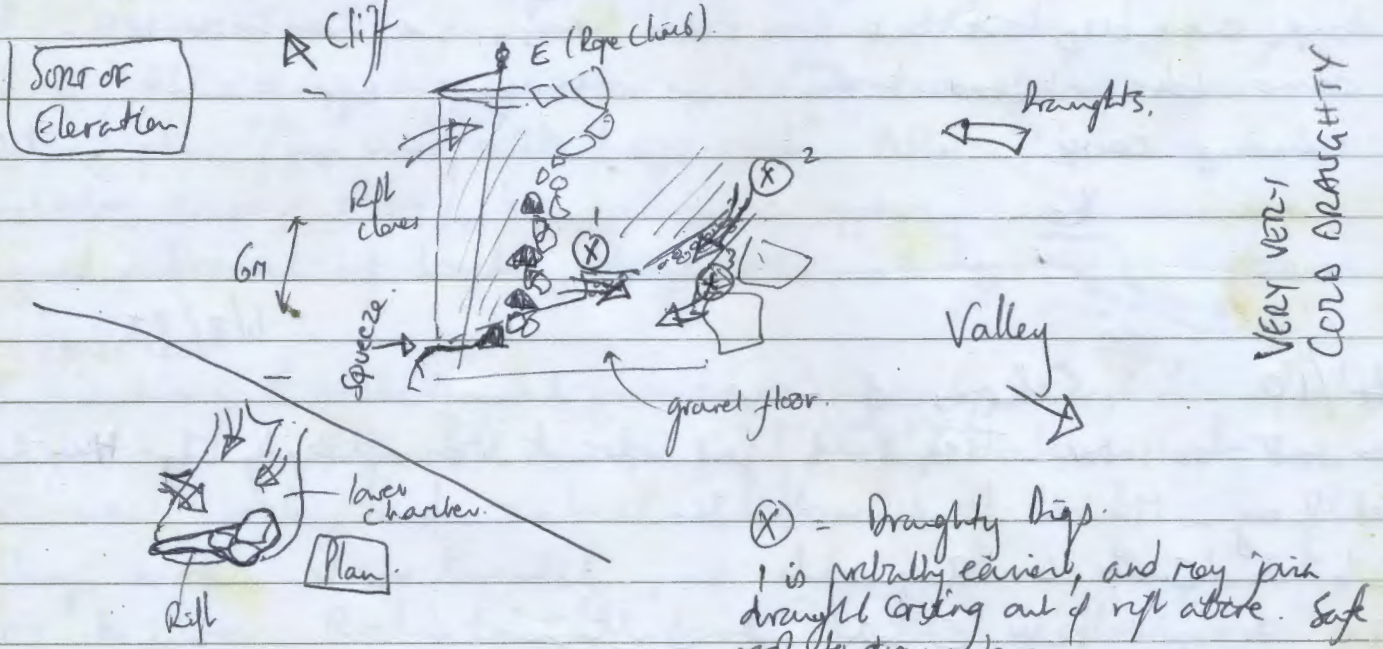 SORT OF
Elevation
Cliff
E (Rope Climb).
Draughts.
VERY VERY
COLD DRAUGHTY
2
Rift
closes
1
6m
Squeeze
Valley
gravel floor.
lower
chamber.
Plan.
Rift
X = Draughty Digs.
1 is probably easiest, and may join
draught coming out of rift above. Safe